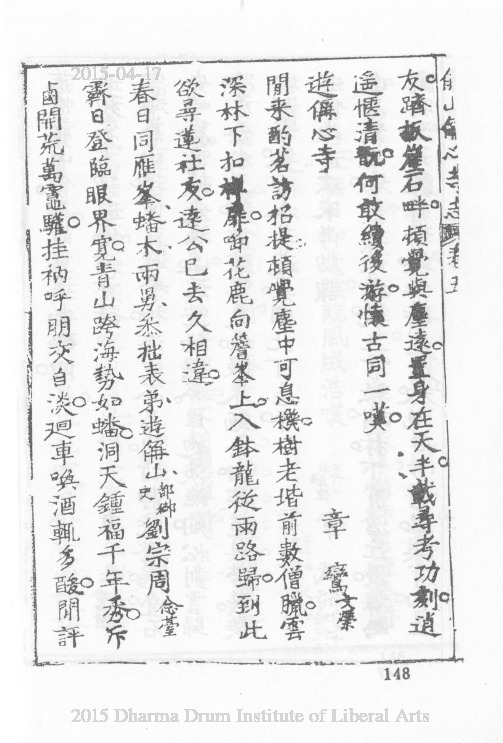 2015-04-17
偁山偁心寺志畧卷五
友躋扳崖石畔頓覺與塵遠置身在天半載尋考功刻逍
遥愜清翫何敢續後遊懷古同一嘆
遊偁心寺 章鸞 文榮
閒来酌茗訪招提頓覺塵中可息機樹老堦前數僧臘雲
深林下扣禅扉啣花鹿向簷峯上入鉢龍従雨路歸到此
欲尋蓮社友遠公已去久相違
春日同雁峯蟠木兩舅丞拙表弟遊偁山 部鄉史 劉宗周 念莹
霽日登臨眼界寬青山跨海勢如蟠洞天鍾福千年秀斥
鹵開荒萬竈驩挂衲呼朋交自淡迴車喚酒輒多酸閒評
148
2015 Dharma Drum Institute of Liberal Arts